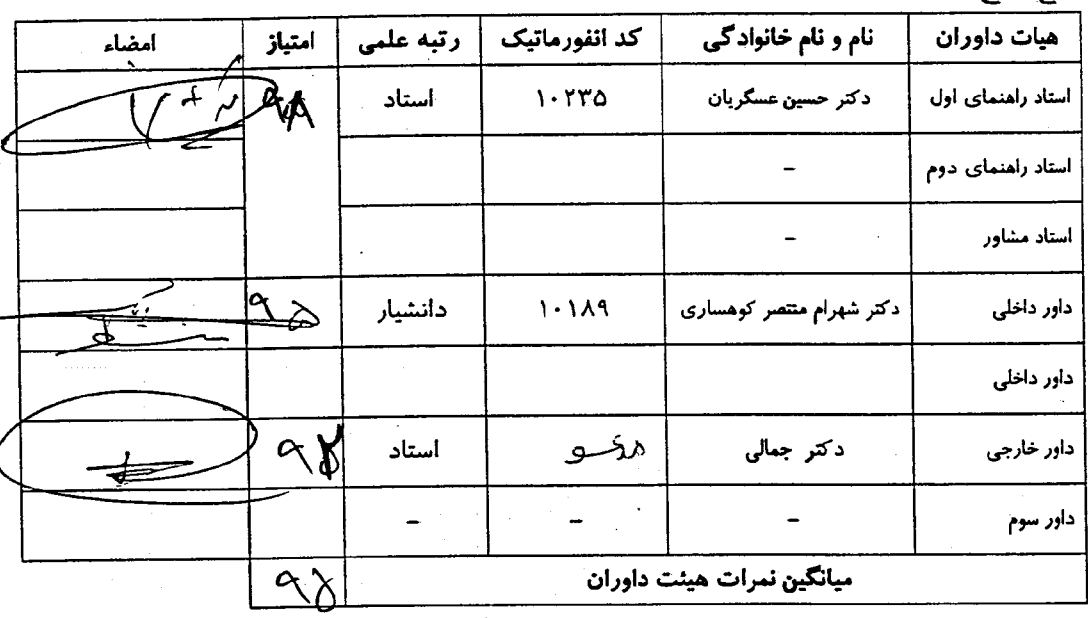 هیات داوران نام و نام خانوادگی کد انفورماتیک رتبه علمی امتیاز امضاء
استاد راهنمای اول دکتر حسین عسگریان ۱۰۲۳۵ استاد ۹۸
استاد راهنمای دوم -
استاد مشاور -
داور داخلی دکتر شهرام منتصر کوهساری ۱۰۱۸۹ دانشیار ۹۵
داور داخلی
داور خارجی دکتر جمالی استاد
داور سوم - - -
میانگین نمرات هیئت داوران ۹۵